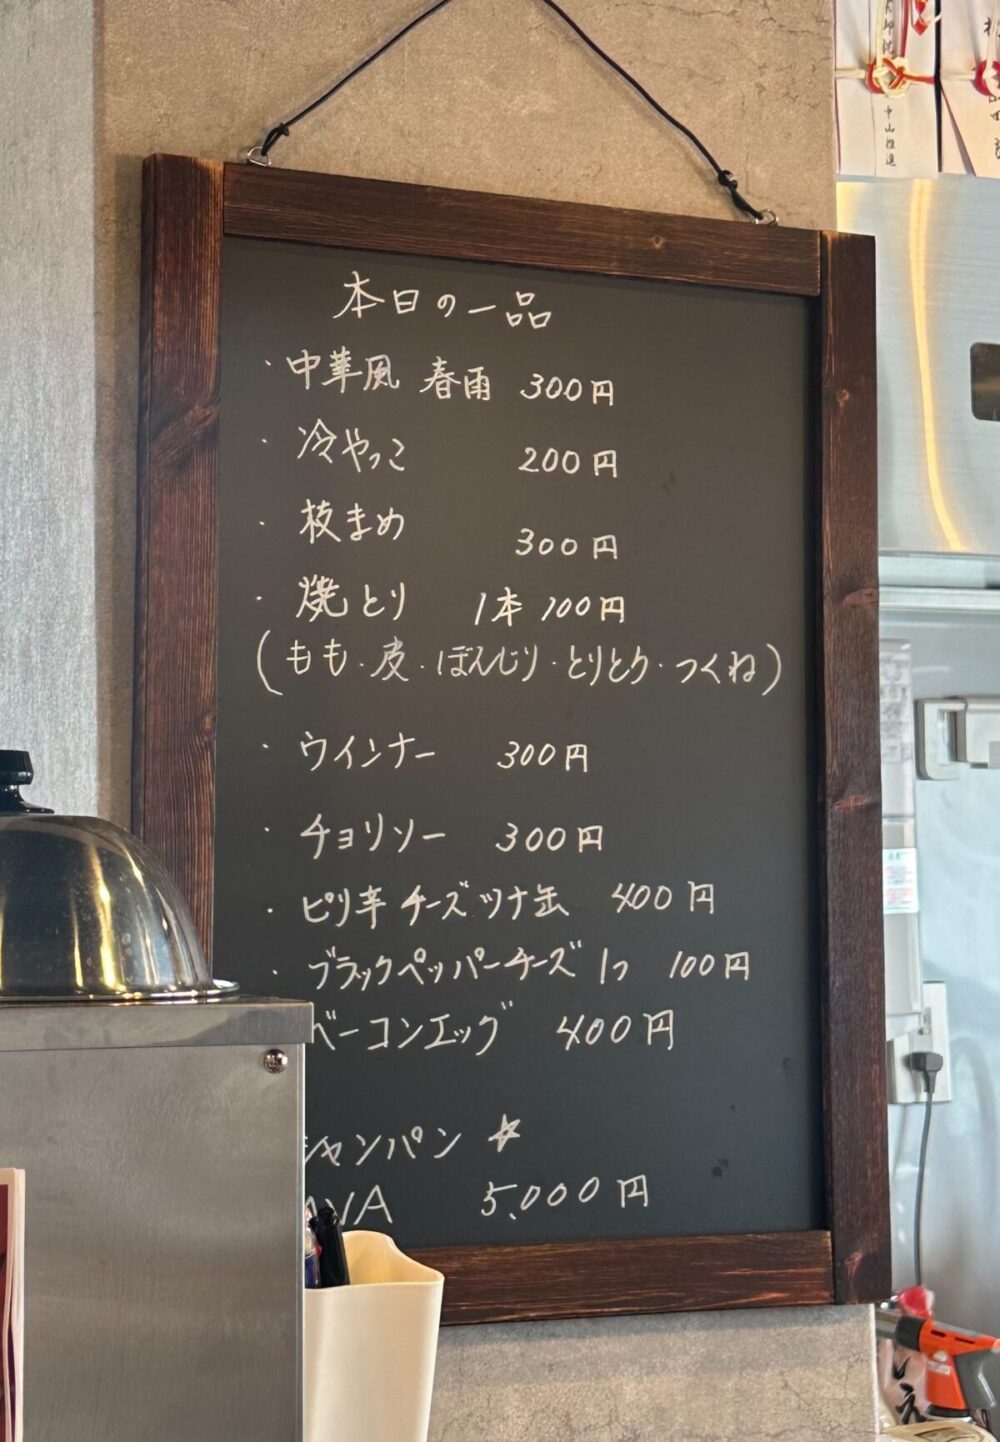 本日の一品
・中華風 春雨 300円
・冷やっこ 200円
・枝まめ 300円
・焼とり 1本 100円
(もも・皮・ぼんじり・とりとり・つくね)
・ウインナー 300円
・チョリソー 300円
・ピリ辛チーズツナ缶 400円
・ブラックペッパーチーズ 1つ 100円
ベーコンエッグ 400円
シャンパン ☆
AVA 5,000円
中山雅道